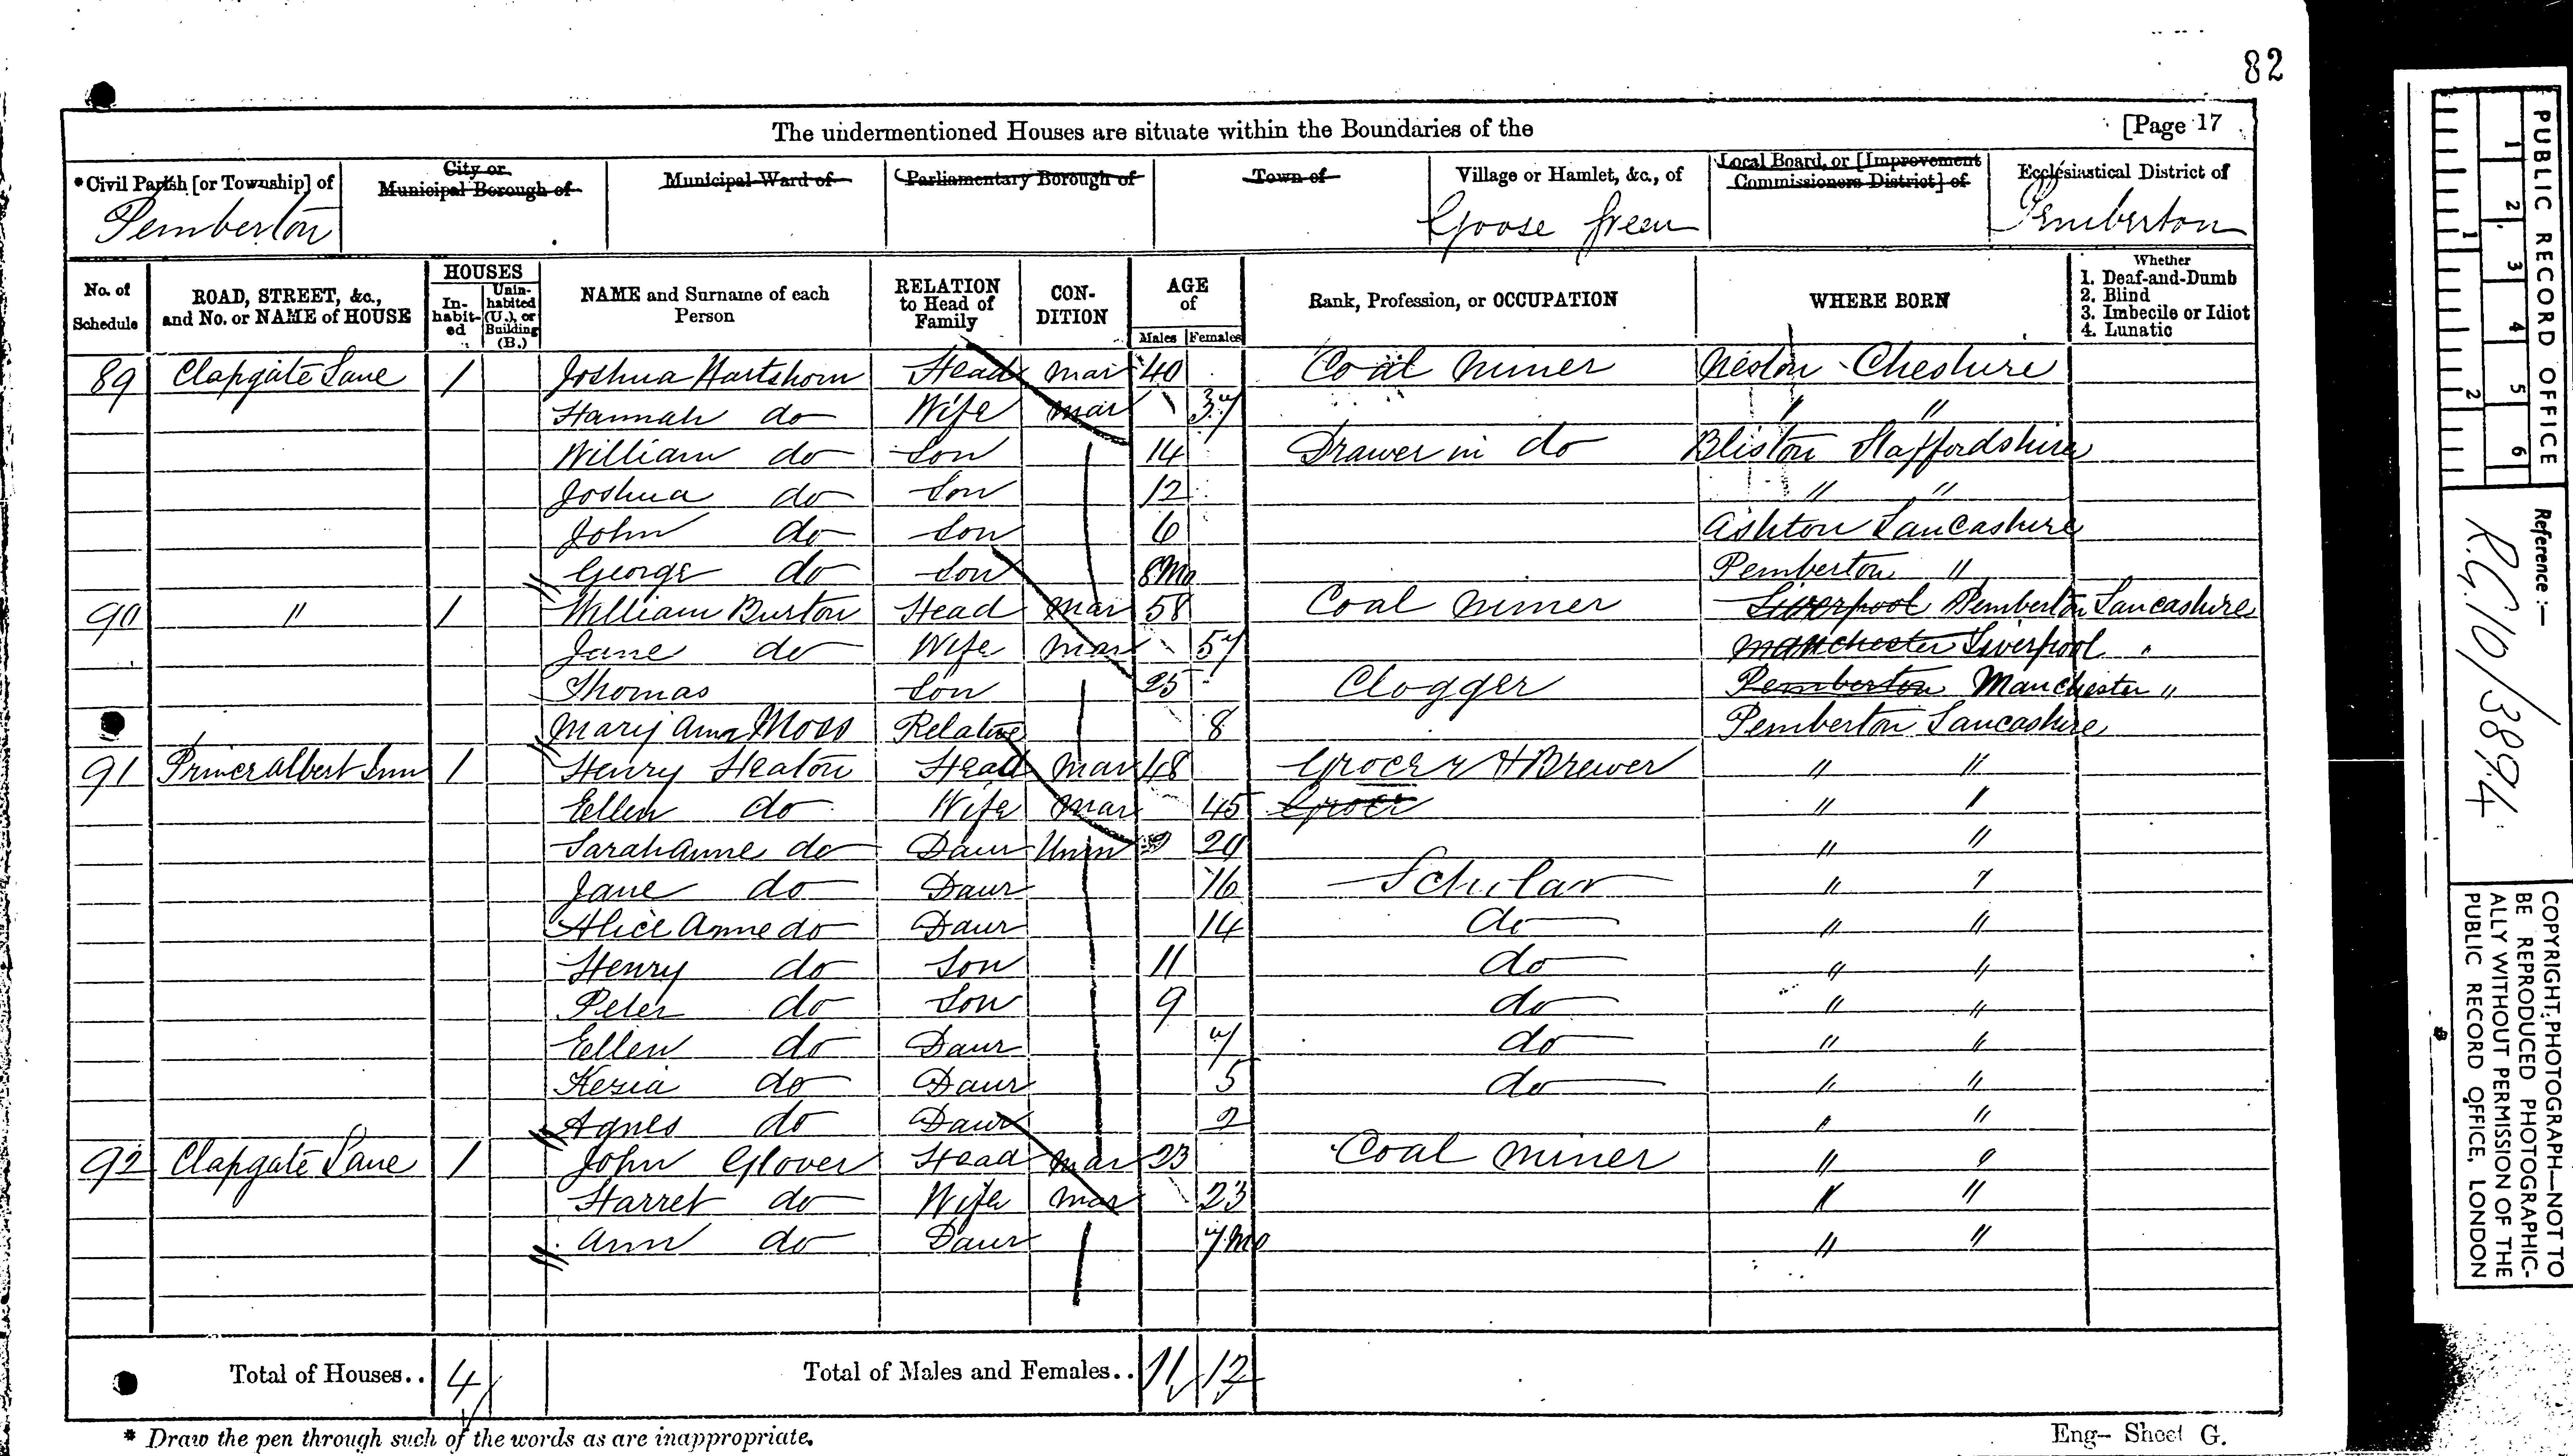 82
The undermentioned Houses are situate within the Boundaries of the [Page 17
*Civil Parish [or Township] of City or Municipal Borough of Municipal Ward of Parliamentary Borough of Town of Village or Hamlet, &c., of Local Board, or [Improvement Commissioners District] of Ecclesiastical District of
Pemberton Goose Green Pemberton
No. of Schedule ROAD, STREET, &c., and No. or NAME of HOUSE HOUSES In-habit-ed Unin-habited (U.), or Building (B.) NAME and Surname of each Person RELATION to Head of Family CON-DITION AGE of Males Females Rank, Profession, or OCCUPATION WHERE BORN Whether 1. Deaf-and-Dumb 2. Blind 3. Imbecile or Idiot 4. Lunatic
89 Clapgate Lane 1 Joshua Hartshorn Head Mar 40 Coal Miner Neston Cheshire
Hannah do Wife Mar 37 " "
William do Son 14 Drawer in do Bliston Staffordshire
Joshua do Son 12 " "
John do Son 6 Ashton Lancashire
George do Son 8 Mo Pemberton "
90 " 1 William Burton Head Mar 58 Coal Miner Liverpool Pemberton Lancashire
Jane do Wife Mar 57 Manchester Liverpool "
Thomas Son 25 Clogger Pemberton Manchester "
Mary Ann Moss Relative 8 Pemberton Lancashire
91 Prince Albert Inn 1 Henry Heaton Head Mar 48 Grocer & Brewer " "
Ellen do Wife Mar 45 Grocer " "
Sarah Anne do Daur Unm 20 " "
Jane do Daur 16 Scholar " "
Alice Anne do Daur 14 do " "
Henry do Son 11 do " "
Peter do Son 9 do " "
Ellen do Daur 7 do " "
Kezia do Daur 5 do " "
Agnes do Daur 2 " "
92 Clapgate Lane 1 John Glover Head Mar 23 Coal Miner " "
Harret do Wife Mar 23 " "
Ann do Daur 7 Mo " "
Total of Houses.. 4 Total of Males and Females.. 11 12
* Draw the pen through such of the words as are inappropriate.
Eng— Sheet G.
PUBLIC RECORD OFFICE
1 2 3 4 5 6
1 2
Reference :—
R.G. 10/3894
COPYRIGHT PHOTOGRAPH—NOT TO
BE REPRODUCED PHOTOGRAPHIC-
ALLY WITHOUT PERMISSION OF THE
PUBLIC RECORD OFFICE, LONDON